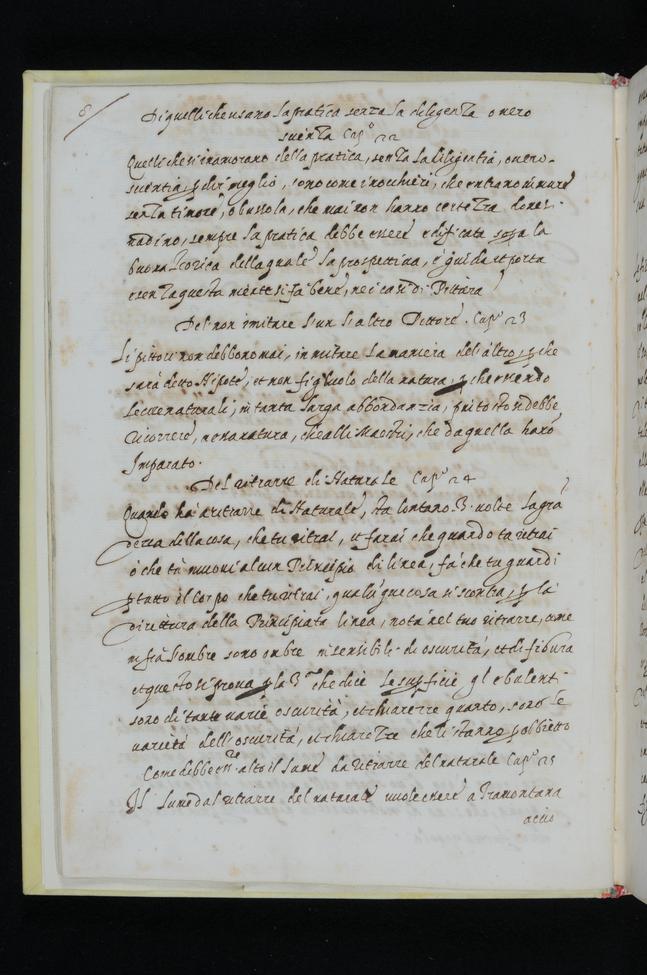 8
Di quelli che usano la pratica senza la diligenza overo
sientia Cap.º 22
Quelli che si inamorano della pratica, senza la diligentia, overo
scientia, p dir meglio, sono come i nochieri, che entrano in mare
senza timone, o bussola, che mai non hanno certezza dove si
vadino, sempre la pratica debbe essere edificata sopa la
buona teorica della quale la prospettiva, è guida et porta
e senza questa niente si fa bene, nei casi di Pittura
Del non imitare l'un l'altro Pittore. Cap.º 23
Li pittori non debbono mai, immitare la maniera del altro, p che
sarà detto Nipote, et non figliuolo della natura, p che essendo
le cose naturali, in tanta larga abbondanzia, più tosto si debbe
ricorrere, ne essa natura, che alli Maestri, che da quella hano
Imparato.
Del ritrarre di Naturale Cap.º 24
Quando hai a ritrarre di Naturale, sta lontano 3 volte la gra
dezza della cosa, che tu ritrai, et farai che quando tu ritrai
o che tu muovi alcun Principio di linea, fa che tu guardi
p tutto il corpo che tu ritrai, qualúque cosa si scontra, p la
dirittura della Principiata linea, nota nel tuo ritrarre, come
infra l'ombre sono ombre insensibili di oscurità, et di figura
et questo si prova p la 3ª che dice le superficie globulenti
sono di tante varie oscurità, et chiarezze quanto, sono le
varietà dell oscurità, et chiarezze che li stanno p obbietto
Come debbe essere alto il lume da ritrarre del naturale Cap.º 25
Il lume dal ritrarre del naturale vuole essere a Tramontana
acciò